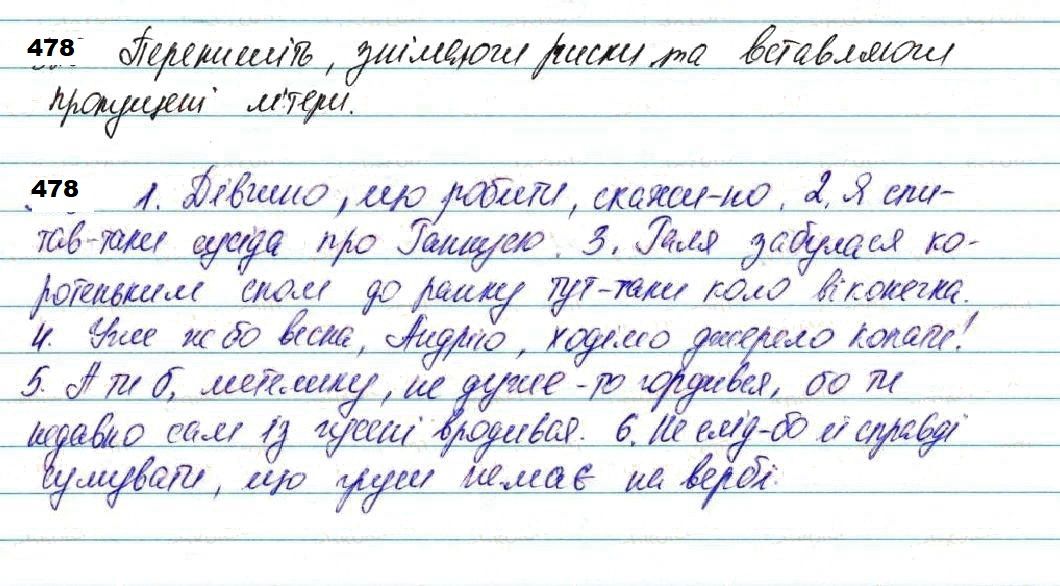 478 Перепишіть, знімаючи риски та вставляючи
пропущені літери.
478 1. Дівчино, що робити, скажи-но. 2. Я спи-
тав-таки сусіда про Ганнусю. 3. Галя забулася ко-
ротеньким сном до ранку тут-таки коло віконечка.
4. Уже ж бо весна, Андрію, ходімо джерело копати!
5. А ти б, метелику, не дуже-то гордився, бо ти
недавно сам із гусені вродився. 6. Не слід-бо й справді
сумувати, що груш немає на вербі.